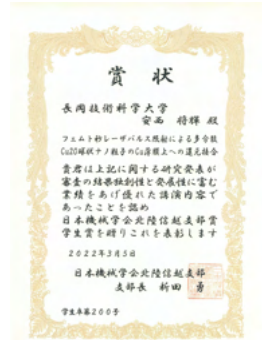 賞状
長岡技術科学大学
安西 将輝 殿
フェムト秒レーザパルス照射による多分散
Cu2O球状ナノ粒子のCu薄膜上への還元接合
貴君は上記に関する研究発表が
審査の結果独創性と発展性に富む
業績をあげ優れた講演内容で
あったことを認め
日本機械学会北陸信越支部賞
学生賞を贈りこれを表彰します
2022年3月5日
日本機械学会北陸信越支部
支部長 新田 勇
学生卓第200号